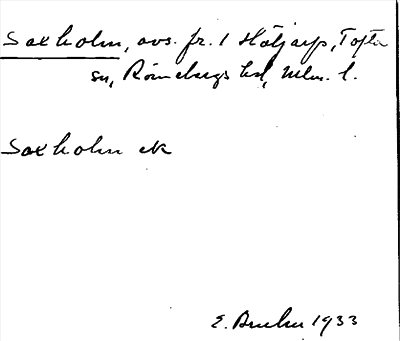 Saxholm, avs. fr. 1 Hötjarp, Tofta
sn, Rönnebergs hd, Mlm. l.
Saxholm ek
E. Bruhn 1933